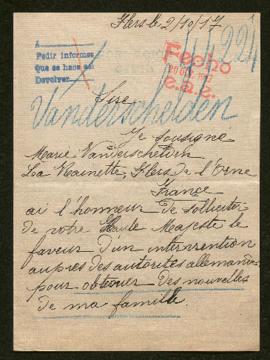 Flers le 2/10/17
A
Pedir informes
Que se hace así
Devolver
Fecho
Vanderschelden
Sire
Je sousigne
Marie Vanderschelden
La Flers de l'Orne
France
ai l'honneur de solliciter
de votre Haute Majesté le
faveur d'un intervention
aupres des autorites allemandes
pour obtenir des nouvelles
de ma famille